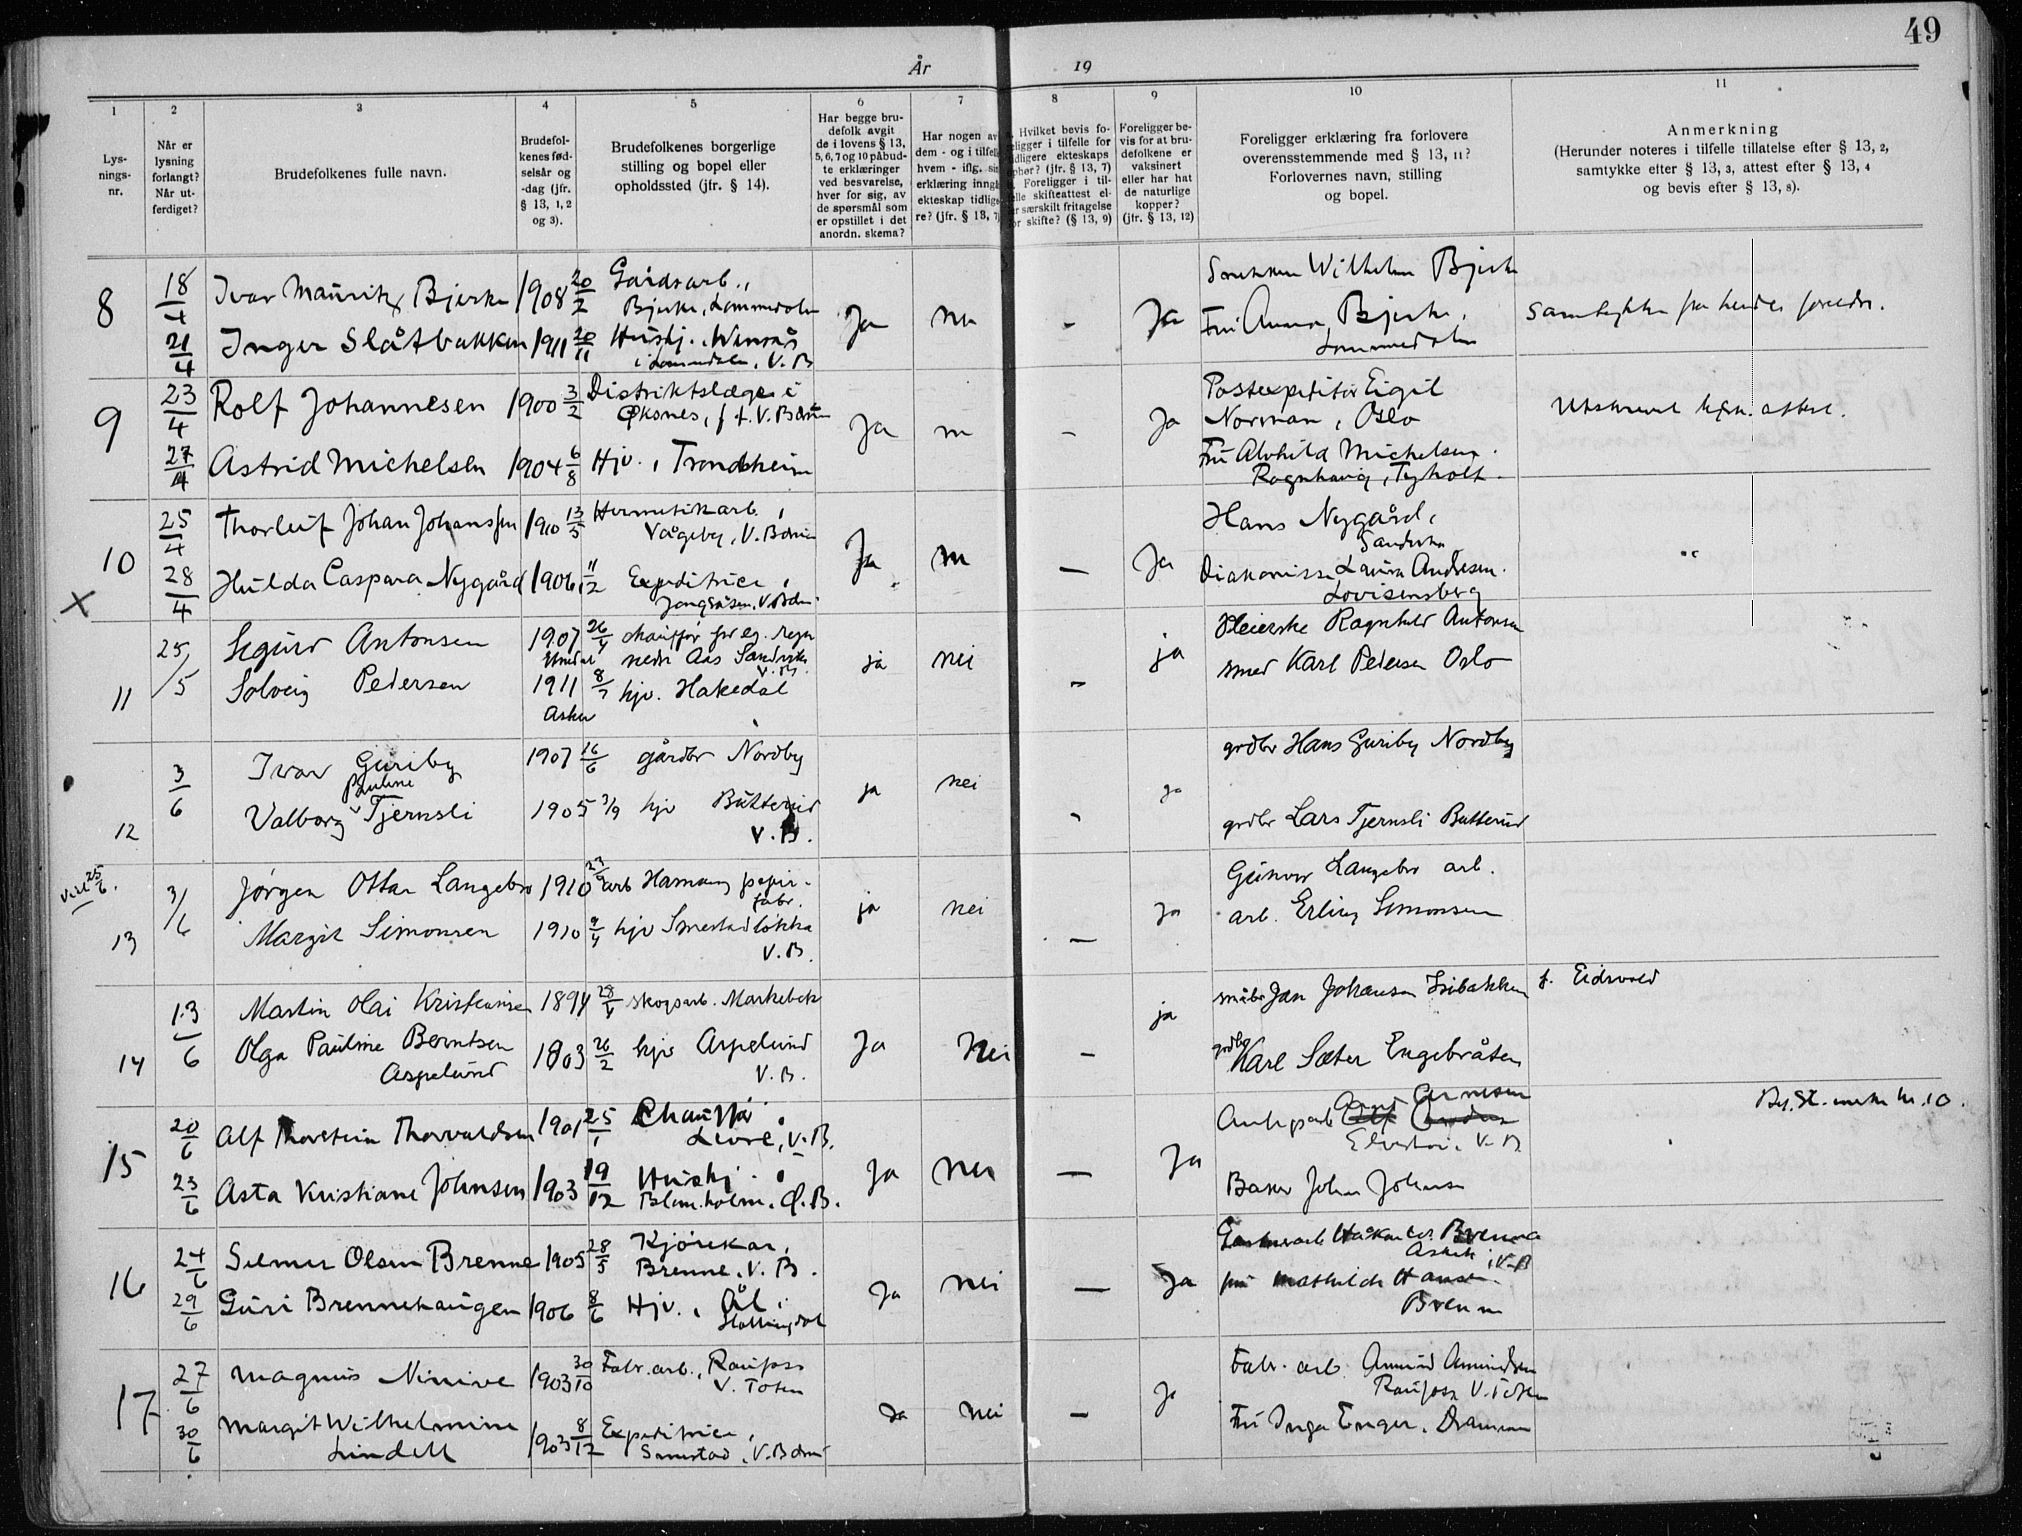 49
År 19
1 2 3 4 5 6 7 8 9 10 11
Lys-
nings-
nr.
Når er
lysning
forlangt?
Når ut-
ferdiget?
Brudefolkenes fulle navn.
Brudefol-
kenes fød-
selsår og
-dag (jfr.
§ 13, 1, 2
og 3).
Brudefolkenes borgerlige
stilling og bopel eller
opholdssted (jfr. § 14).
Har begge bru-
defolk avgit
de i lovens § 13,
5, 6, 7 og 10 påbud-
te erklæringer
ved besvarelse,
hver for sig, av
de spørsmål som
er opstillet i det
anordn. skema?
Har nogen av
dem - og i tilfelle
hvem - iflg. sin
erklæring inngå
ekteskap tidlige
re? (jfr. § 13, 7)
Hvilket bevis fo-
eligger i tilfelle for
idligere ekteskaps
ophør? (jfr. § 13, 7)
Foreligger i til-
elle skifteattest el-
er særskilt fritagelse
or skifte? (§ 13, 9)
Foreligger be-
vis for at bru-
defolkene er
vaksinert
eller har hat
de naturlige
kopper?
(jfr. § 13, 12)
Foreligger erklæring fra forlovere
overensstemmende med § 13, 11?
Forlovernes navn, stilling
og bopel.
Anmerkning
(Herunder noteres i tilfelle tillatelse efter § 13, 2,
samtykke efter § 13, 3, attest efter § 13, 4
og bevis efter § 13, 8).
8 18/4 Ivar Mauritz Bjerke 1908 20/2 Gårdsarb.,
Bjerke, Lommedalen
Ja nei - Ja Wilhelm Bjerke
Fru Anna Bjerke,
Lommedalen
Samtykke fra hendes foreldre.
21/4 Inger Slåtbakken 1911 20/11 Hushj.,
i Lommedalen, V. B
9 23/4 Rolf Johannesen 1900 3/2 Distriktslæge i
Øksnes, f. t. V. Bærum
Ja - Ja Postexpeditør Eigil
Norman, Oslo
Utskrevet attest.
27/4 Astrid Michelsen 1904 6/8 Hjv., Trondheim
Fru Alvhild Michelsen
Tyholt.
10 25/4 Thorleif Johan Johanssen 1910 13/5 Hermetikarb.,
Vågeby, V. Bærum
Ja - Ja Hans Nygård,
Sandvika
28/4 Hulda Caspara Nygård 1906 11/12 Expeditrice,
Jongsåsen, V. Bærum
Diakonisse Laura Andresen.
Lovisenberg
X
11 25/5 Sigurd Antonsen 1907 26/4 chauffør for eg. regn
nedre Aas Sandvika
V. B.
ja nei - ja Ragnhild Antonsen
Solveig Pedersen 1911 8/7 hjv. Hakedal
Asker
smed Karl Pedersen Oslo
12 3/6 Ivar Guriby 1907 16/6 gårdbr Nordby
ja nei - ja grdbr Hans Guriby Nordby
Pauline
Valborg Tjernsli 1905 3/9 hjv Butterud
V. B.
grdbr Lars Tjernsli Butterud
25/6.
13 3/6 Jørgen Ottar Langebro 1910 arb Hamang papir-
fabr.
ja nei - ja Gunvor Langebro arb.
Margit Simonsen 1910 9/4 hjv Smestadløkka
V. B.
arb. Erling Simonsen
14 13/6 Martin Olai Kristiansen 1894 skogsarb. Markebek
Ja Nei - ja småbr Jan Johansen
f. Eidsvold
Olga Pauline Berntsen
Aspelund
1903 26/2 hjv Aspelund
V. B.
grdbr
Karl Sæter Engebråten
15 20/6 Alf Thorstein Thorvaldsen 1901 25/1 Chauffør,
Levre, V. B.
Ja nei - Ja Arnt Arnesen
V. B
23/6 Asta Kristiane Johnsen 1903 19/12 Hushj.,
Blomholm. Ø. B.
Baker Johan Johnsen
16 24/6 Selmer Olsen Brenne 1905 28/5 Kjørekar,
Brenne, V. B.
Ja nei - Ja Brenna
V. B
29/6 Guri Brennehaugen 1906 8/6 Hjv., Ål,
Hallingdal
fru Mathilde Hansen.
Brenne
17 27/6 Magnus Ninive 1903 30/10 Fabr. arb., Raufoss
V. Toten
Ja nei - Ja Fabr. arb. Amund Amundsen
Raufoss V. Toten
30/6 Margit Wilhelmine
Lindell
1903 8/12 Expeditrice,
Smestad, V. Bærum
Fru Inga Enger. Drammen